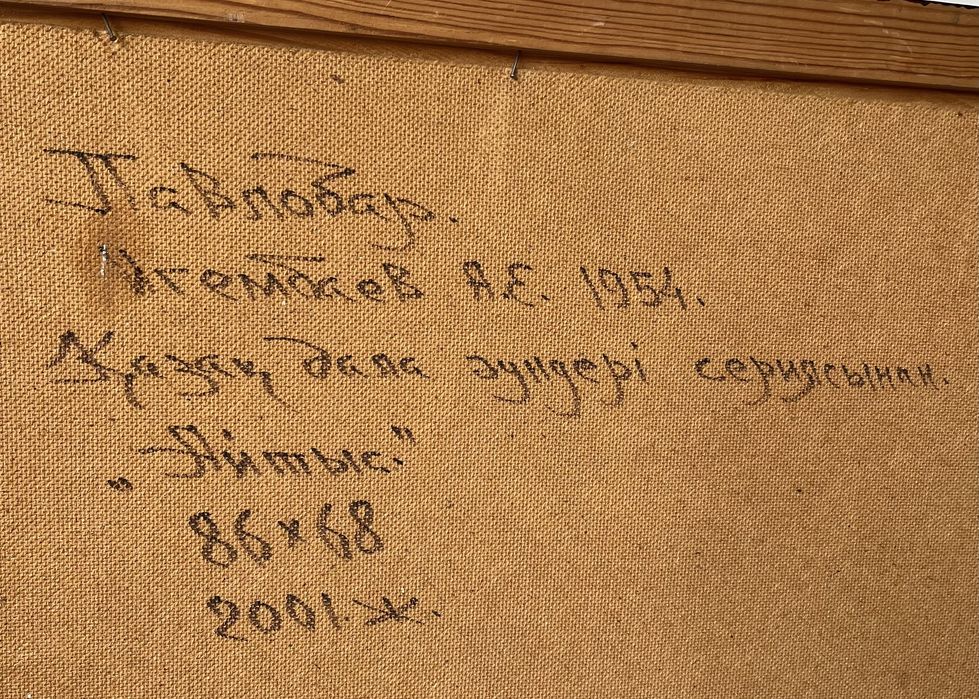 Павлодар.
А.Е. 1954.
Қазақ дала әундері сериясынан.
„Айтыс."
86×68
2001.ж.